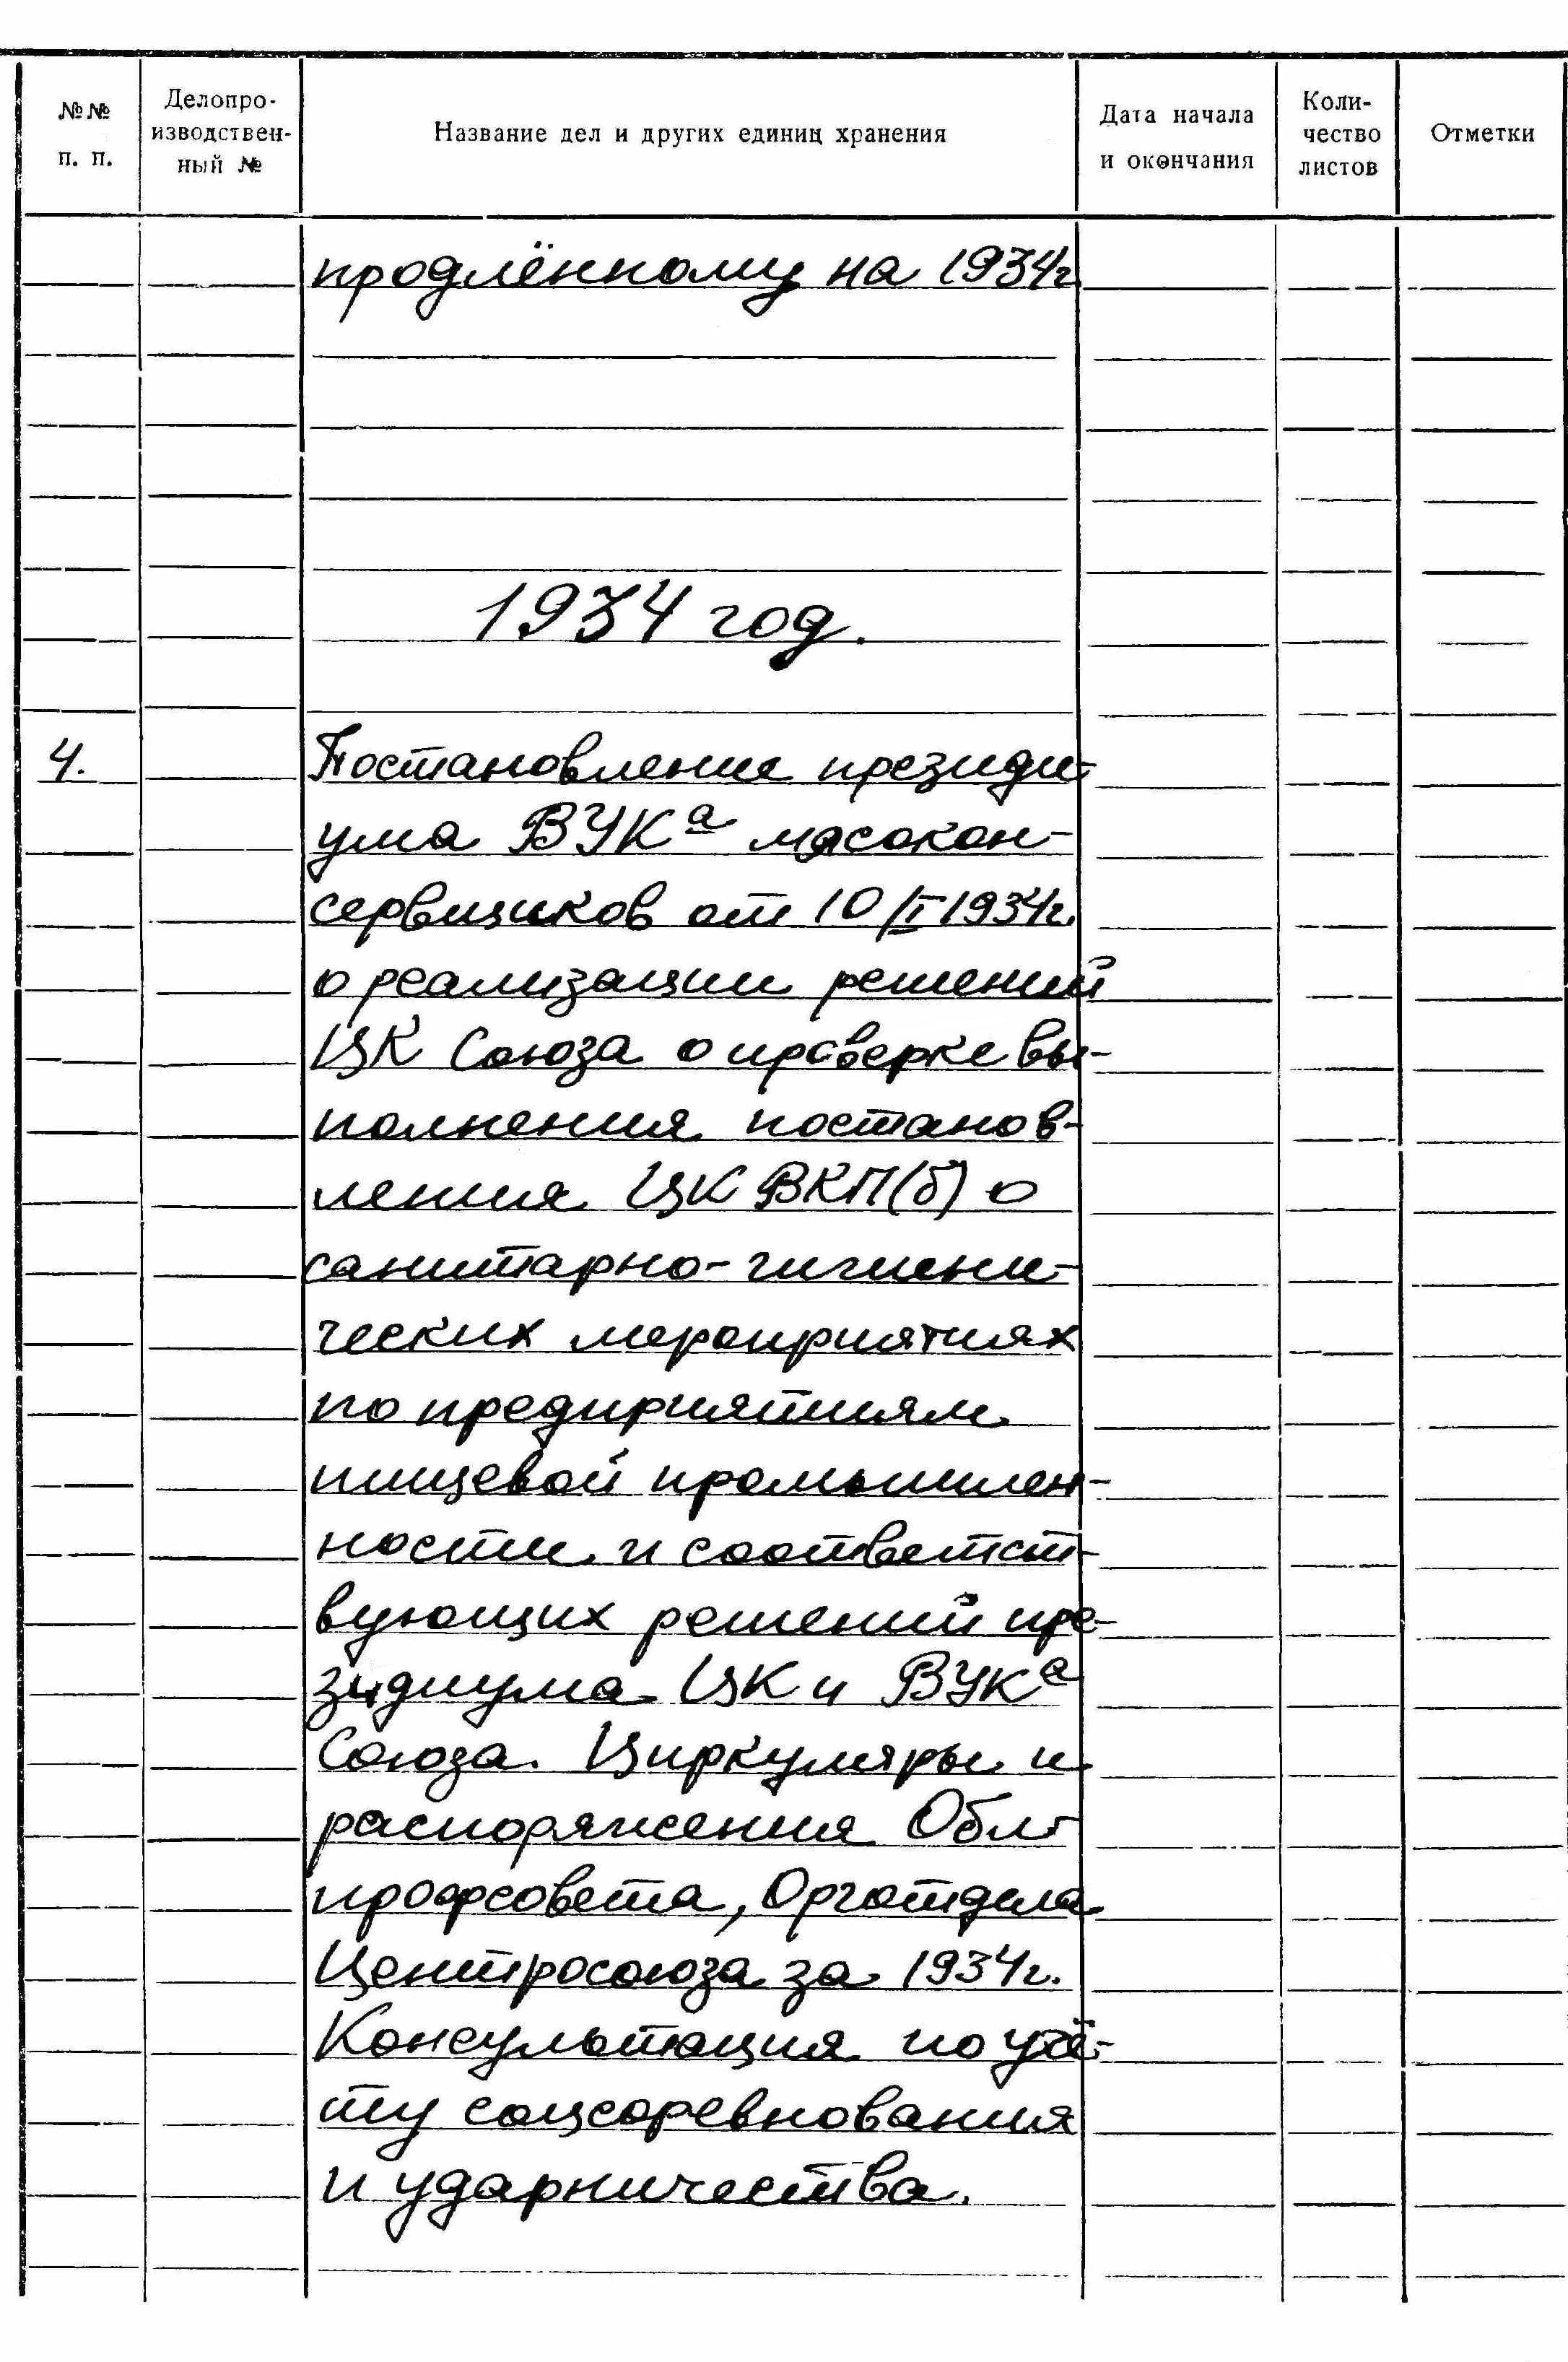 №№ п. п.
Делопро-
изводствен-
ный №
Название дел и других единиц хранения
Дата начала
и окончания
Коли-
чество
листов
Отметки
продлённому на 1934г
1934 год.
4.
Постановление президи-
ума ВУКа мясокон-
сервщиков от 10/I 1934г.
о реализации решений
ЦК Союза о проверке вы-
полнения постанов-
ления ЦК ВКП(б) о
санитарно-гигиени-
ческих мероприятиях
по предприятиям
пищевой промышлен-
ности и соответст-
вующих решений пре-
зидиума ЦК и ВУКа
Союза. Циркуляры и
распоряжения Обл-
профсовета, Орготдела
Центросоюза за 1934г.
Консультация по учё-
ту соцсоревнования
и ударничества.